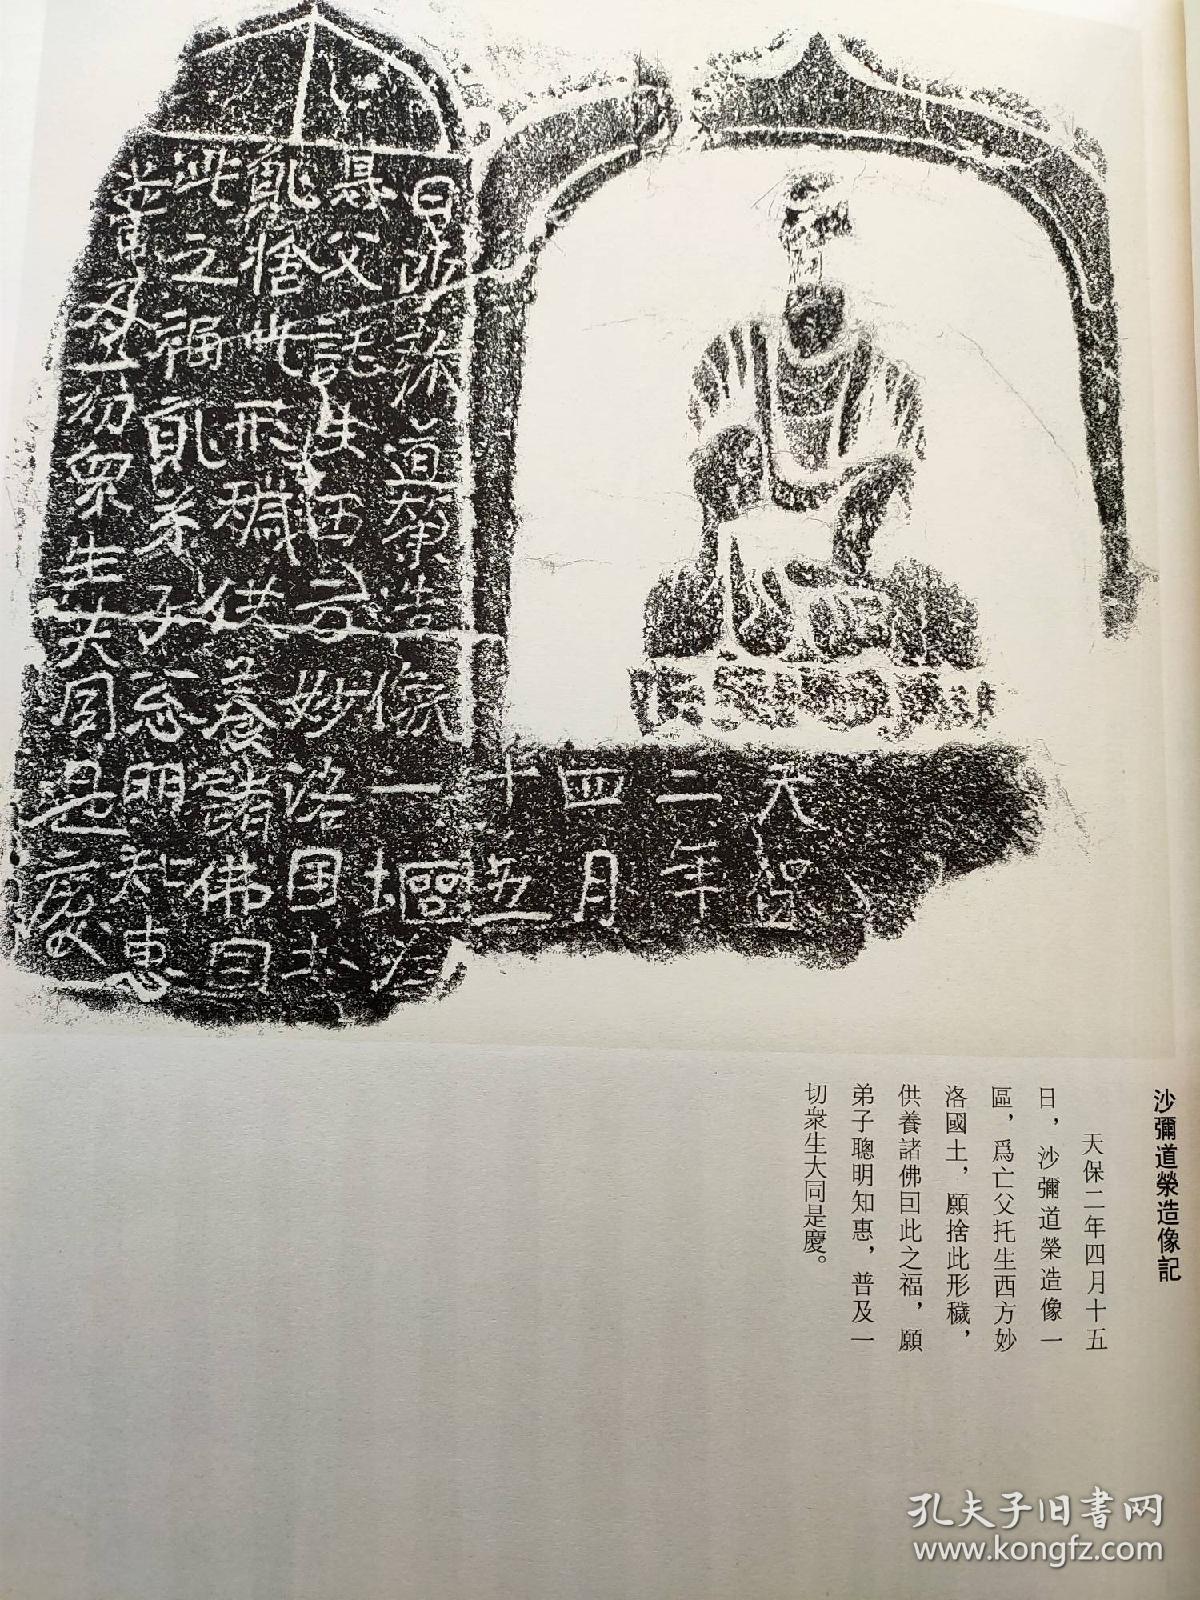 天保
二年
四月
十五
日沙弥道荣造像一塸为
忘父託生西方妙洛国土
願捨此形穢供養諸佛囙
此之福願弟子忩明知惠
普及一切眾生大同是慶
沙彌道榮造像記
天保二年四月十五
日，沙彌道榮造像一
區，爲亡父托生西方妙
洛國土，願捨此形穢，
供養諸佛囙此之福，願
弟子聰明知惠，普及一
切衆生大同是慶。
孔夫子旧书网
www.kongfz.com